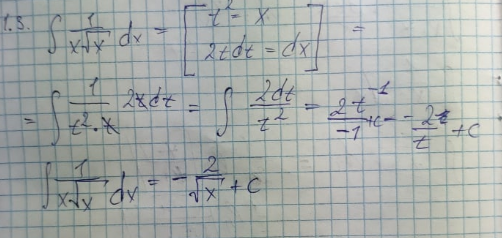 1.3. ∫ 1/(x√x) dx = [t² = x
2tdt = dx] =
= ∫ 1/(t²·t) 2tdt = ∫ 2dt/t² = 2t⁻¹/-1 +c = -2/t + c
∫ 1/(x√x) dx = - 2/√x + c